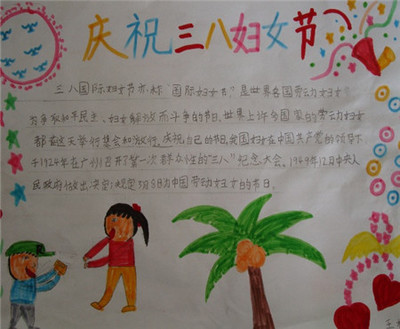 庆祝三八妇女节
三八国际妇女节亦称"国际妇女节"是世界各国劳动妇女
为争取和平民主、妇女解放而斗争的节日,世界上许多国家的劳动妇女
都在这天举行集会和游行,庆祝自己的节日,我国妇女在中国共产党的领导下
于1924年在广州召开第一次群众性的"三八"纪念大会。1949年12月中央人
民政府做出决定:规定3月8日为中国劳动妇女的节日。